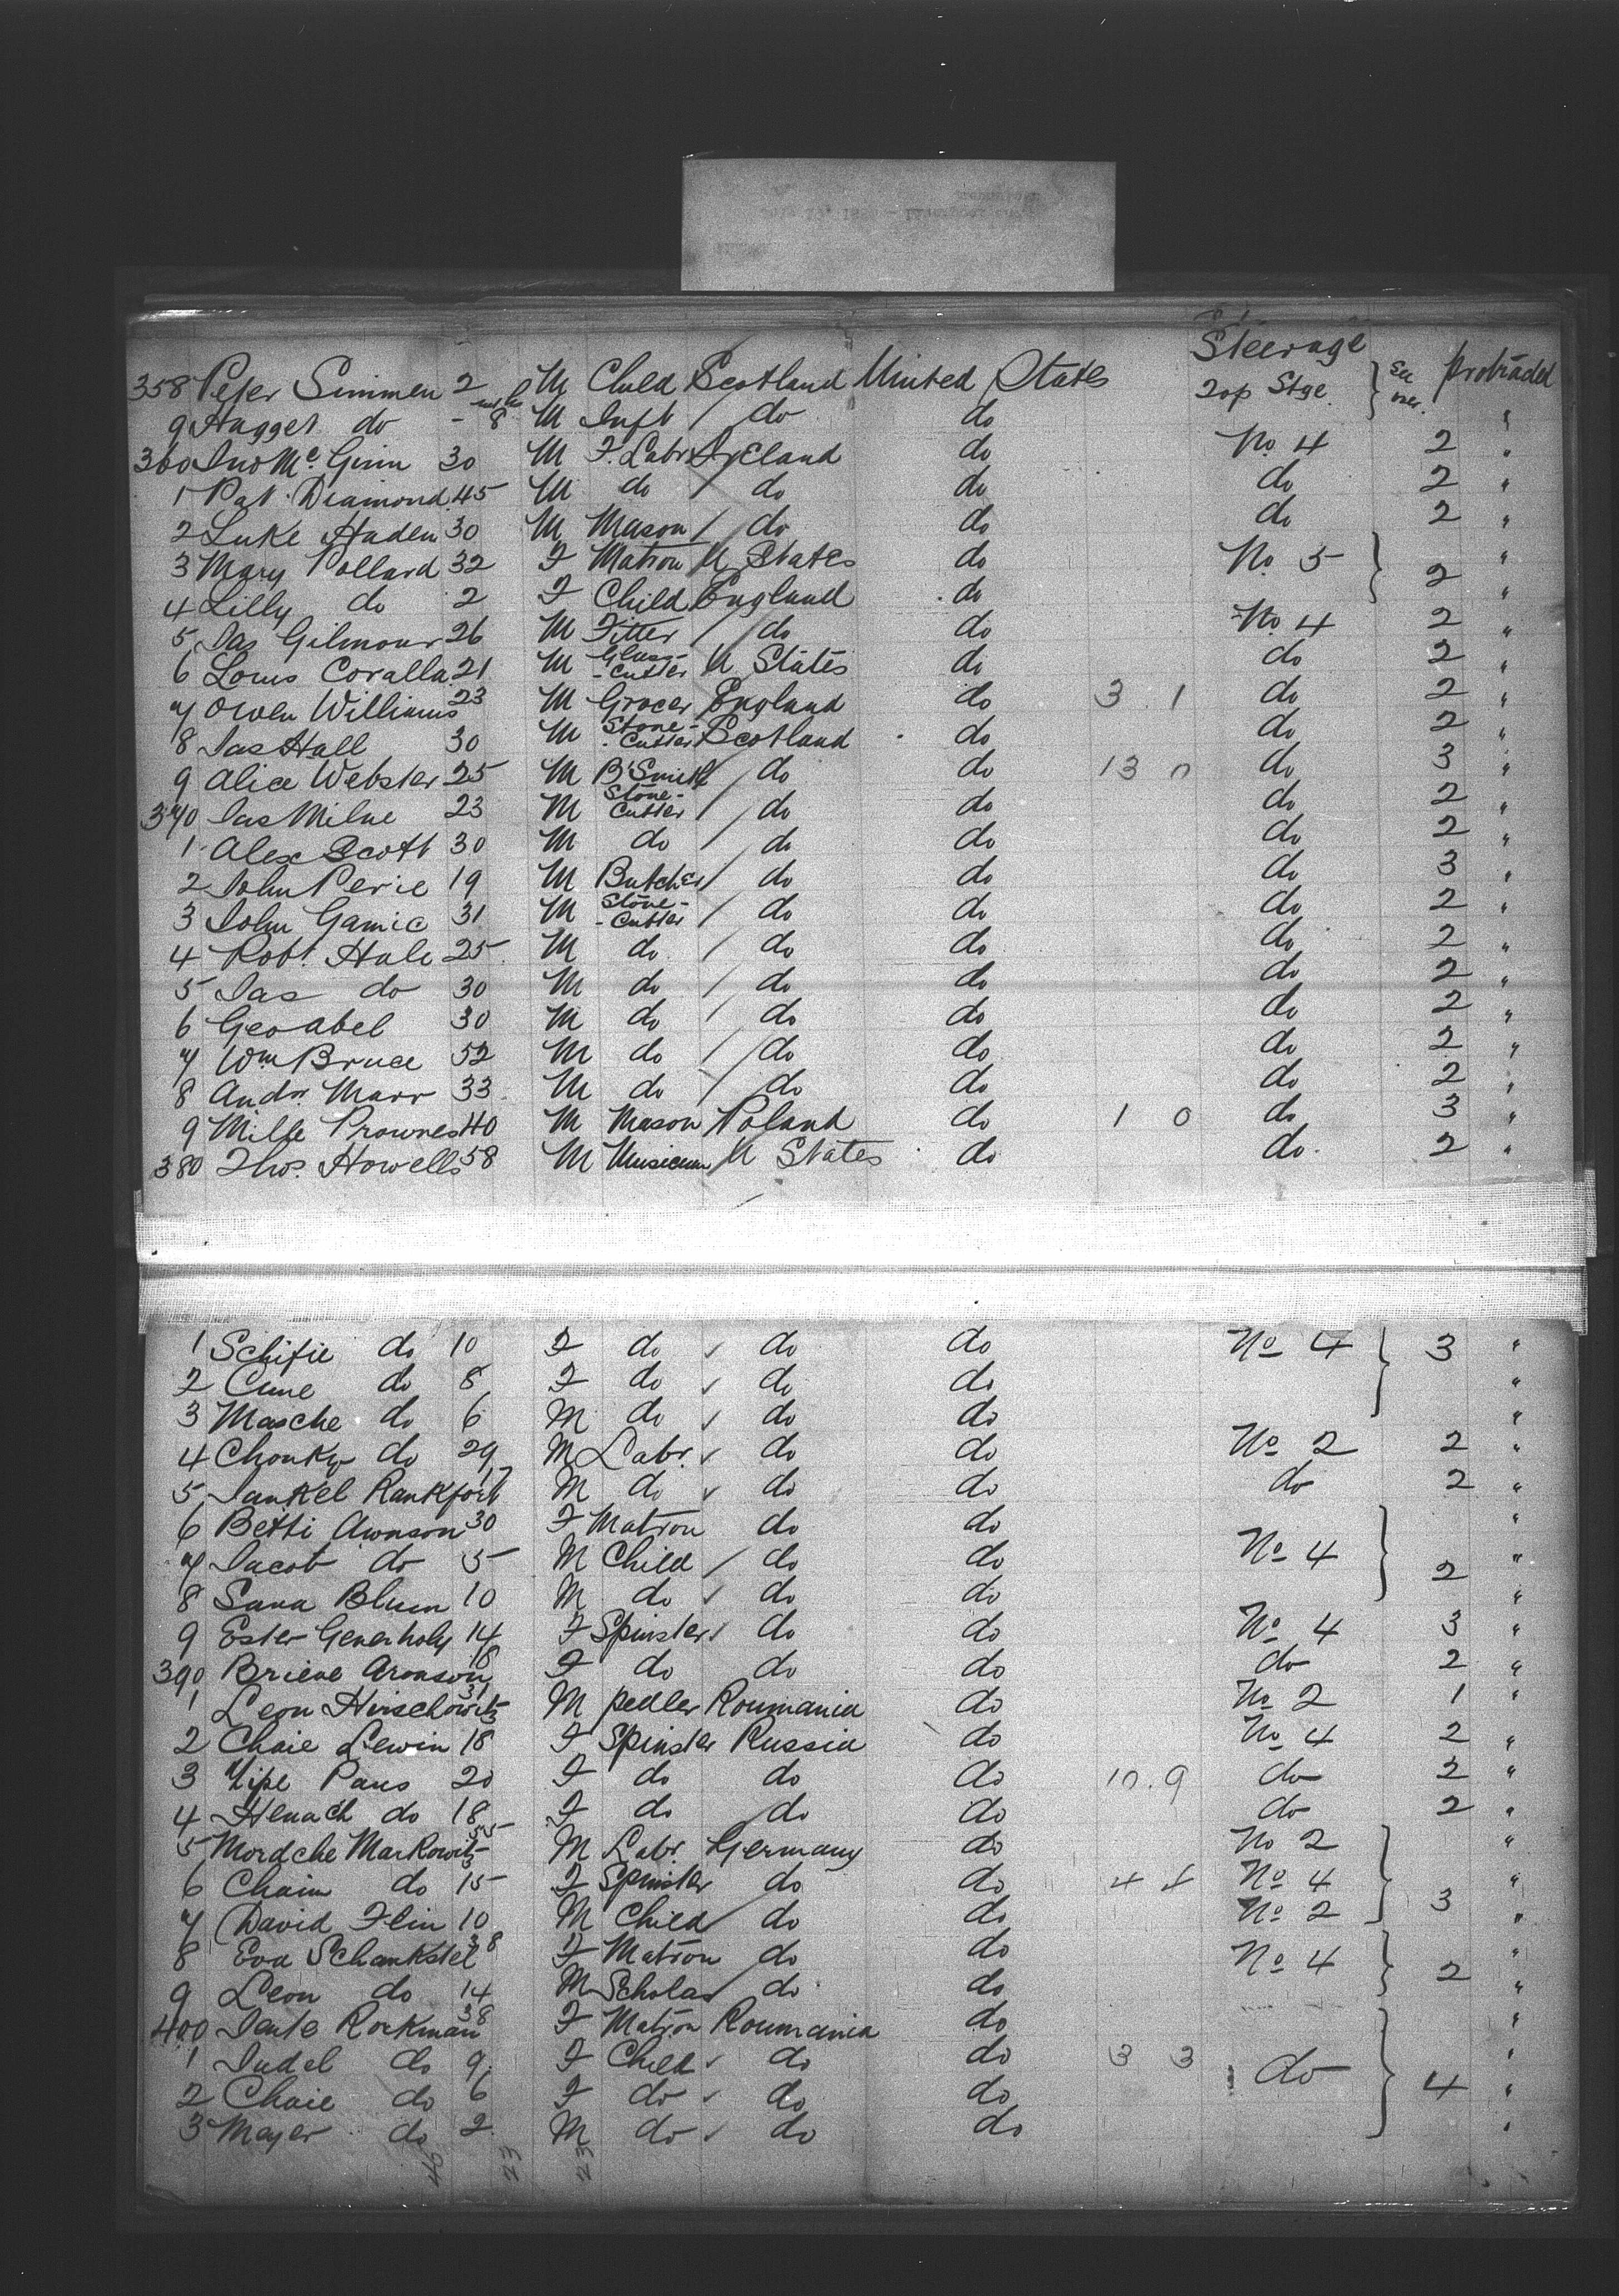 Steerage
358 Peter Simmen 2 M Child Scotland United States 2op Stge. See over. Protracted
9 Hugget do - 8 mths M Inft / do do "
360 Jno Mc. Ginn 30 M F. Labr Ireland do No. 4 2 "
1 Pat. Diamond 45 M do / do do do 2 "
2 Luke Haden 30 M Mason / do do do 2 "
3 Mary Pollard 32 F Matron U States do No. 5 "
4 Lilly do 2 F Child England do 2 "
5 Jas Gilmour 26 M Fitter / do do No. 4 2 "
6 Louis Coralla 21 M Glass-Cutter U States do do 2 "
7 Owen Williams 23 M Grocer England do 3 1 do 2 "
8 Jas Hall 30 M Stone-Cutter Scotland do do 2 "
9 Alice Webster 25 M B'Smith / do do 13 0 do 3 "
370 Jas Milne 23 M Stone-Cutter / do do do 2 "
1 Alex Scott 30 M do / do do do 2 "
2 John Perie 19 M Butcher / do do do 3 "
3 John Gamic 31 M Stone-Cutter / do do do 2 "
4 Robt. Hale 25 M do / do do do 2 "
5 Jas do 30 M do / do do do 2 "
6 Geo Abel 30 M do / do do do 2 "
7 Wm Bruce 52 M do / do do do 2 "
8 Andr. Marr 33 M do / do do do 2 "
9 Mille Prownes 40 M Mason Poland do 1 0 do 3 "
380 Thos. Howells 58 M Musician U States do do. 2 "
1 Schifie do 10 F do ✓ do do No 4 3 "
2 Cune do 8 F do ✓ do do "
3 Masche do 6 M do ✓ do do "
4 Chonky do 29 M Labr. ✓ do do No 2 2 "
5 Jankel Rankfort 17 M do ✓ do do do 2 "
6 Betti Aronson 30 F Matron do do "
7 Jacob do 5 M Child / do do No 4 "
8 Sana Blum 10 M do ✓ do do 2 "
9 Ester Generholy 14 F Spinster ✓ do do No 4 3 "
390 Briene Aronson 18 F do do do do 2 "
1 Leon Hirschowitz 31 M Pedler Roumania do No 2 1 "
2 Chaie Lewin 18 F Spinster Russia do No 4 2 "
3 Zipe Pans 20 F do do do 10.9 do 2 "
4 Henach do 18 F do do do do 2 "
5 Mordche Markowitz 55 M Labr. Germany do No 2 "
6 Chaim do 15 F Spinster do do 4 4 No 4 "
7 David Flin 10 M Child do do No 2 3 "
8 Eva Schankstel 38 F Matron do do No 4 "
9 Leon do 14 M Scholar do do 2 "
400 Jente Rorkman 38 F Matron Roumania do "
1 Judel do 9 F Child ✓ do do 3 3 do "
2 Chaie do 6 F do ✓ do do 4 "
3 Majer do 2 M do ✓ do do "
46 23 23